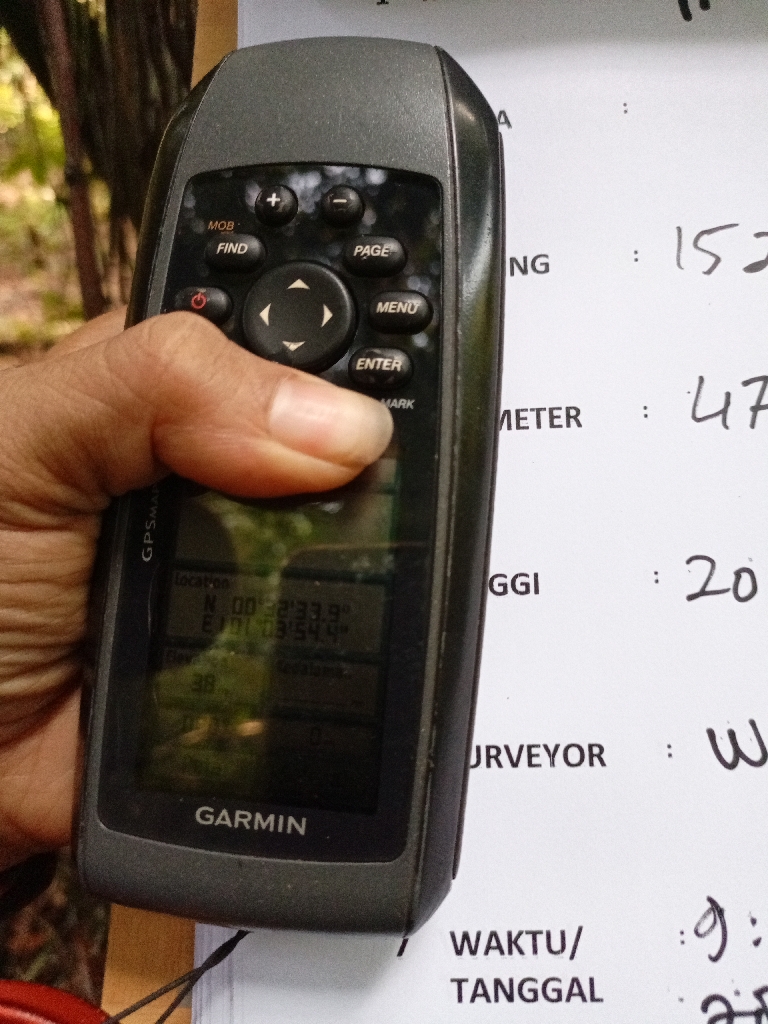 + -
MOB
FIND PAGE
MENU
ENTER
MARK
Location
N 00°32'33.9"
E101°03'54.4"
38
GARMIN
A :
NG : 152
METER : 47
GGI : 20
URVEYOR : W
WAKTU/ : 9:
TANGGAL